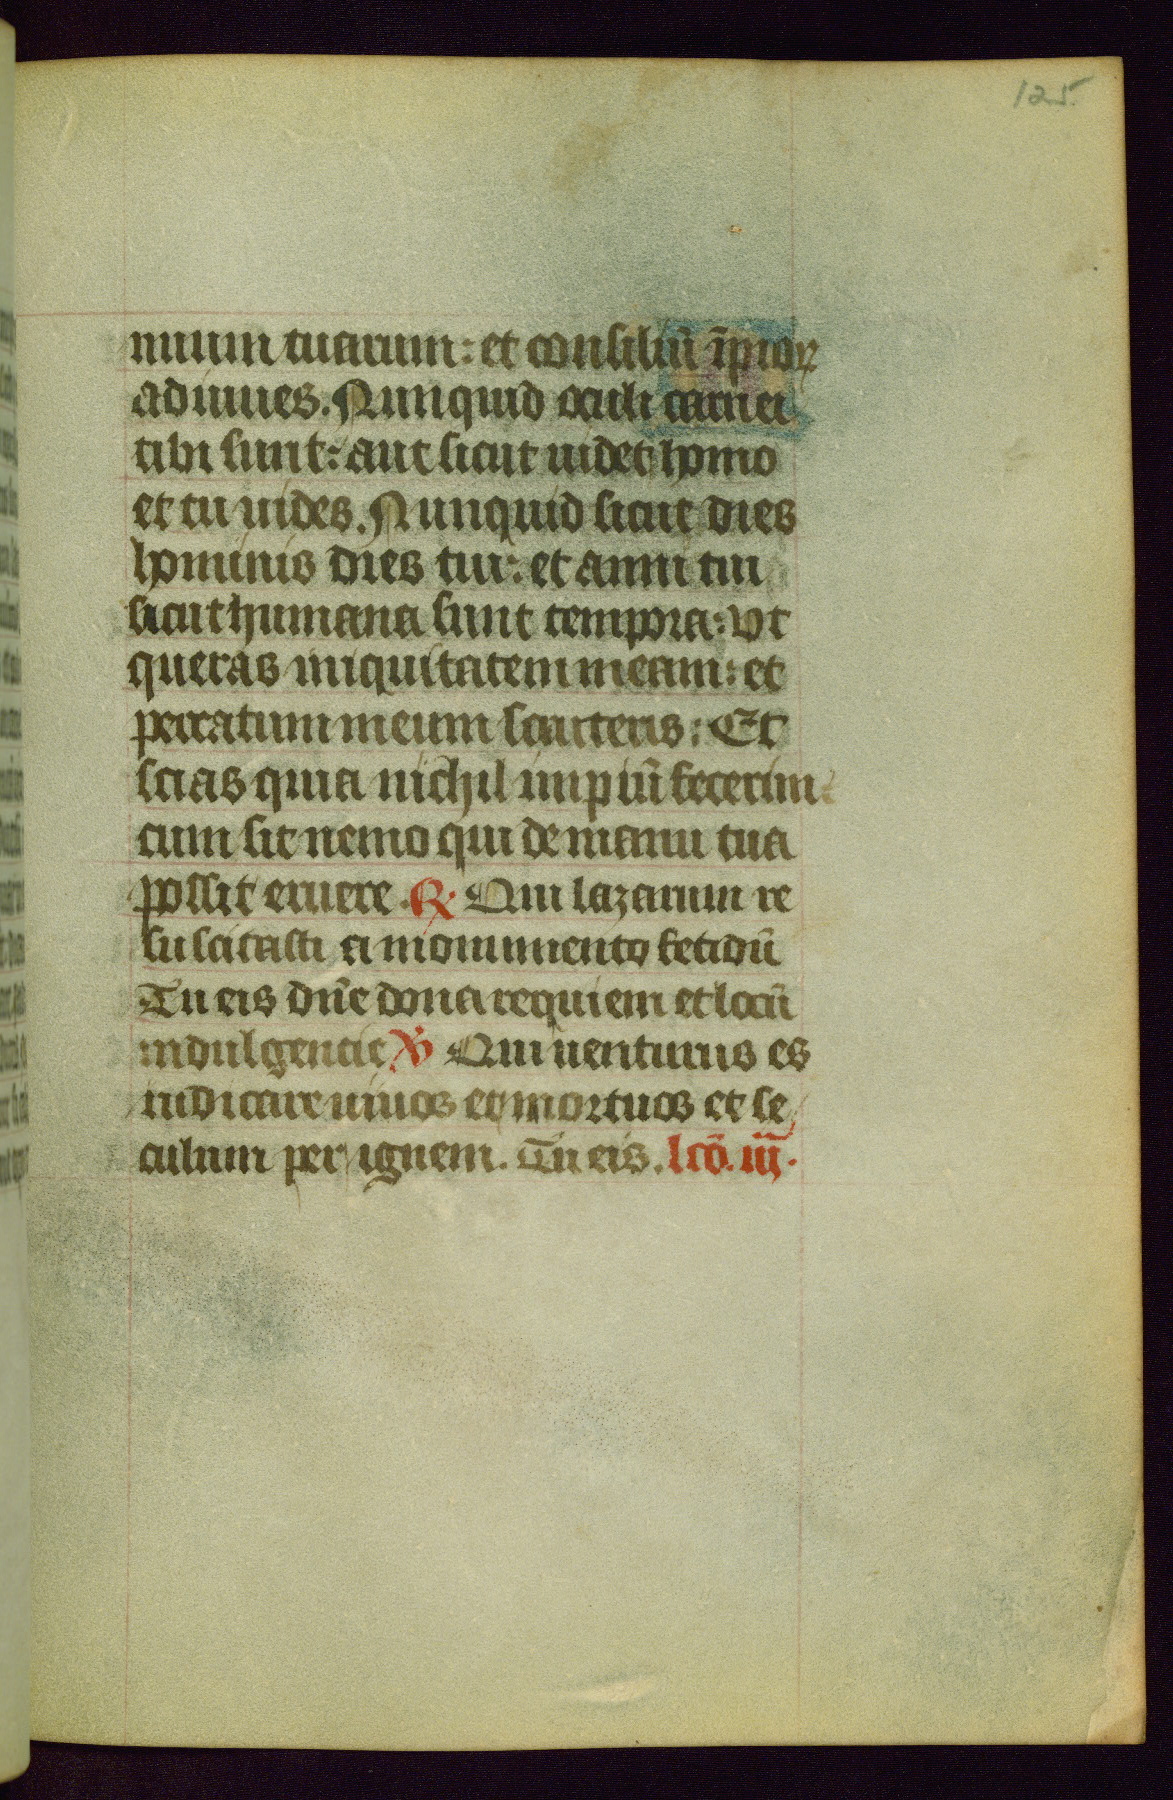 125.
nuum tuarum: et consiliū īpioꝝ
adiuues. Nunquid oculi carnei
tibi sunt: aut sicut uidet homo
et tu uides. Nunquid sicut dies
hominis dies tui: et anni tui
sicut humana sunt tempora: Vt
queras iniquitatem meam: et
peccatum meum scruteris: Et
scias quia nichil impiū fecerim:
cum sit nemo qui de manu tua
possit eruere. R. Qui lazarum re
suscitasti a monumento fetidū
Tu eis dn̄e dona requiem et locū
indulgencie ℣ Qui uenturus es
iudicare uiuos et mortuos et se
culum per ignem. Tu eis. lcō. iij.